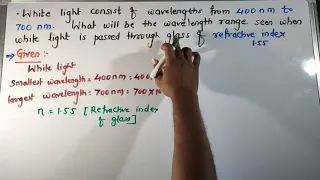 • White light consist of wavelengths from 400 nm to
700 nm. What will be the wavelength range seen when
white light is passed through glass of refractive index
1.55
⇒ Given :-
White light
Smallest wavelength = 400nm = 400
largest wavelength = 700 nm = 700 × 10
n = 1.55 [Refractive index
of glass]